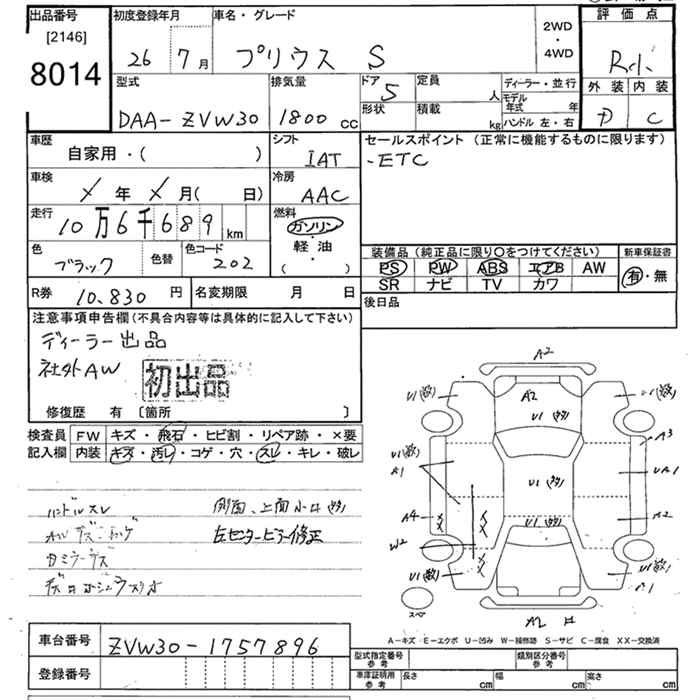 出品番号
[2146]
8014
初度登録年月
26 7月
車名・グレード
プリウス S
2WD
・
4WD
評価点
外装 内装
D C
型式
DAA-ZVW30
排気量
1800 CC
ドア
5
形状
定員
人
積載
kg
ディーラー・並行
モデル
年式 年
ハンドル 左・右
車歴
自家用・( )
シフト
IAT
セールスポイント (正常に機能するものに限ります)
-ETC
車検
年 月( 日)
冷房
AAC
走行
10万6千689 km
燃料
ガソリン
・
軽油
( )
色
ブラック
色替
色コード
202
装備品 (純正品に限り○をつけてください)
PS PW ABS エアB AW
SR ナビ TV カワ
新車保証書
有・無
R券 10,830 円
名変期限 月 日
後日品
注意事項申告欄(不具合内容等は具体的に記入して下さい)
ディーラー出品
社外AW
初出品
修復歴 有 〔箇所 〕
検査員
記入欄
FW キズ・飛石・ヒビ割・リペア跡・×要
内装 キズ・汚レ・コゲ・穴・スレ・キレ・破レ
ハンドルスレ
側面、上面小キズ(多)
左センターピラー修正
A2
A2
U1(多)
U1(多)
U1(多)
U1(数)
U1(数)
A1
A3
UA1
A4
A2
W2
U1(数)
U1(数)
A1
スペア
A2
A-キズ E-エクボ U-凹み W-補修跡 S-サビ C-腐食 XX-交換済
車台番号 ZVW30-1757896
登録番号
型式指定番号
参考
類別区分番号
参考
車庫証明用
参考
長さ cm
幅 cm
高さ cm